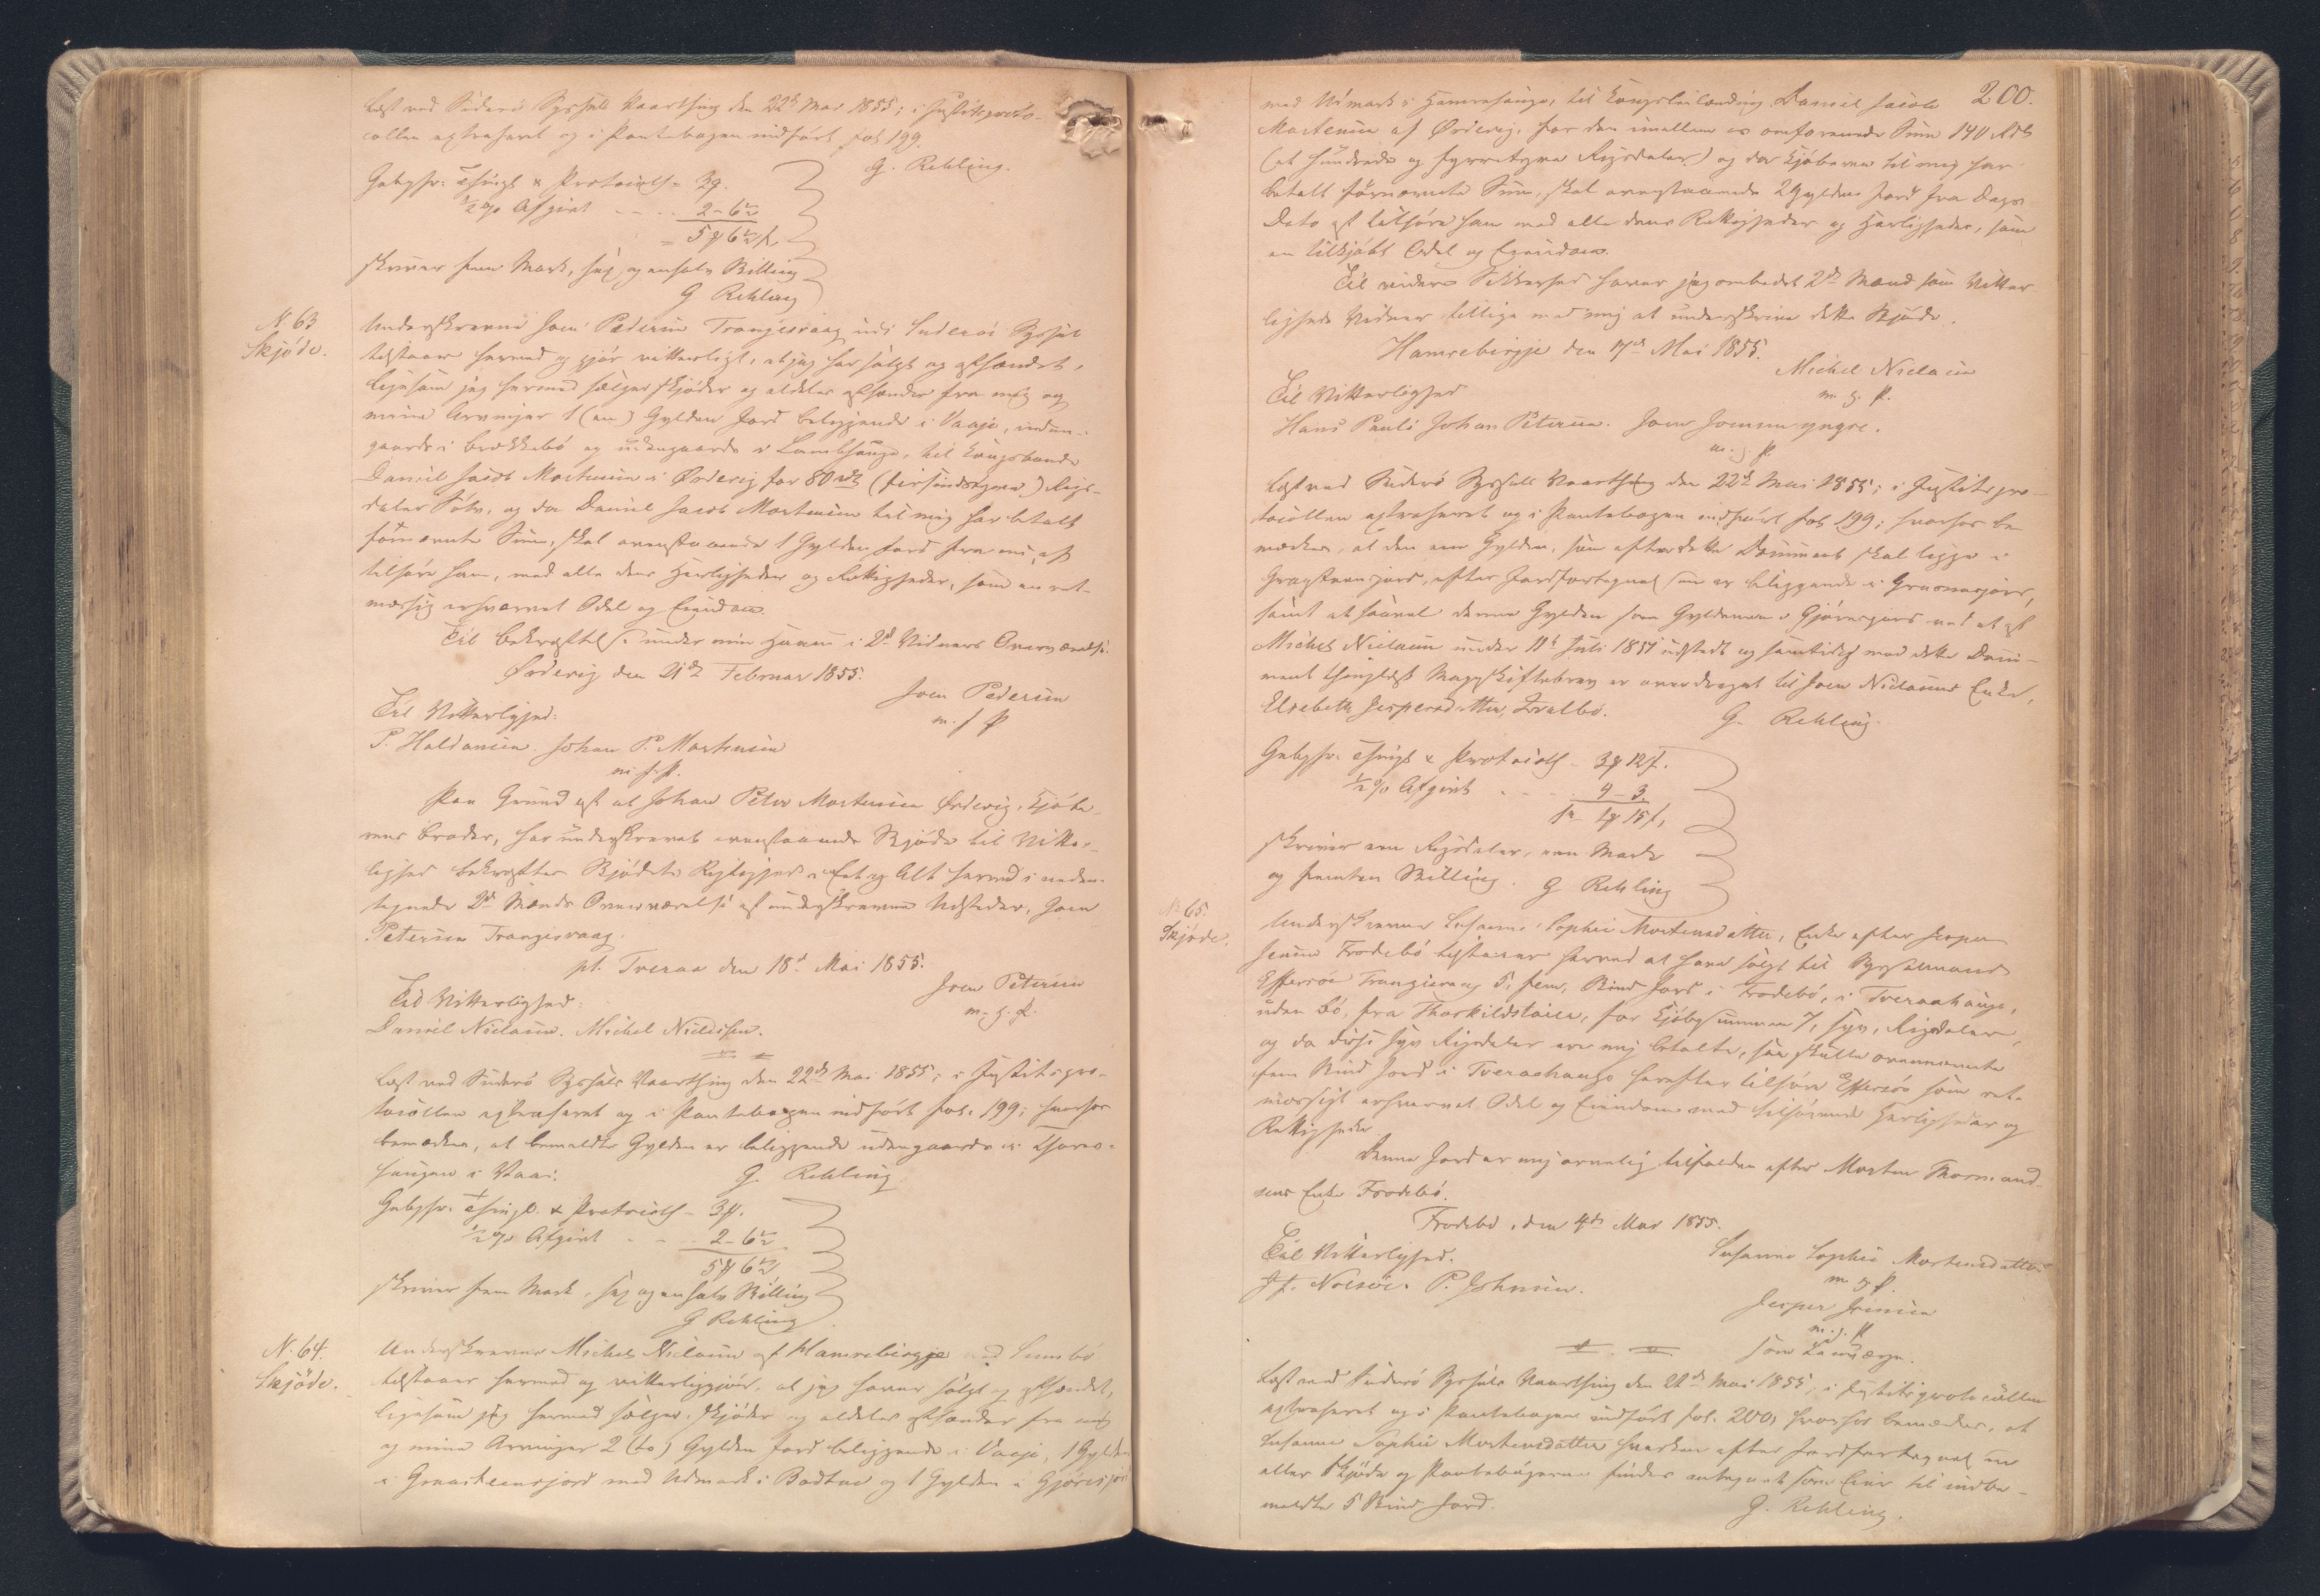 Læst ved Süderö Syssels Vaarthing den 22de Mai 1855; i Justitsproto-
collen extraheret og i Pantebogen indført fol 199.
G. Rehling.
Gebyhr: Thingl & Protocoll = 3 $.
1/2 % Afgivt - - - 2 - 6 1/2
= 5 $ 6 1/2 s,
skriver fem Mark, sex og en halv Skilling
G Rehling
N. 63
Skjöde.
Underskrevne Joen Pedersen Trangisvaag udi Suderöe Syssel
tilstaaer hermed og gjör vitterligt, at jeg har solgt og afhændet,
ligesom jeg hermed sælger, skjöder og aldeles afhænder fra mig og
mine Arvinger 1 (een) Gylden Jord beliggende i Vaaje, inden-
gaards i Brekkebö og udengaards i Lambhauge, til Kongsbonde
Daniel Jacob Mortensen i Ördevig for 80 rd (firsindstyve) Rigs-
daler Sölv, og da Daniel Jacob Mortensen til mig har betalt
fornævnte Sum, skal ovenstaaende 1 Gylden Jord fra nu af
tilhöre ham, med alle dens Herligheder og Rettigheder, som en ret-
mæssig erhvervet Odel og Eiendom.
Til Bekræftelse under min Haand i 2de Vidners Overværelse.
Ördevig den 21de Februar 1855.
Joen Pedersen
m. f. P.
Til Vitterlighed:
P. Haldansen. Johan P. Mortensen
m. f. P.
Paa Grund af at Johan Peter Mortensen Ördevig, Kjöbe-
rens Broder, har underskrevet ovenstaaende Skjöde til Vitter-
lighed bekræftes Skjödets Rigtighed i Eet og Alt hermed i neden-
tegnede 2de Mænds Overværelse af underskrevne Udsteder, Joen
Petersen Trangisvaag.
pt. Tveraa den 18de Mai 1855.
Joen Petersen
m. f. P.
Til Vitterlighed:
Daniel Niclasen. Michel Nieldsen.
Læst ved Süderö Syssels Vaarthing den 22de Mai 1855; i Justitspro-
tocollen extraheret og i Pantebogen indført fol. 199; hvorhos
bemærkes, at bemeldte Gylden er beliggende udengaards i
haugen i Vaai.
G. Rehling.
Gebyhr. Thingl. & Protocoll - 3 $.
1/2 % Afgivt - - 2 - 6 1/2
5 $ 6 1/2
skriver fem Mark, sex og en halv Skilling
G Rehling
N. 64.
Skjöde.
Underskrevne Michel Niclasen af Hamrebirgje ved Sumbö
tilstaaer hermed og vitterliggjör, at jeg haver solgt og afhændet,
ligesom jeg hermed sælger, skjöder og aldeles afhænder fra mig
og mine Arvinger 2 (to) Gylden Jord beliggende i Vaaje, 1 Gylden
i Graasteensjord med Udmark i Bodtue og 1 Gylden i Gjöresjord
200.
med Udmark i Hamrehauge, til Kongsleilænding Daniel Jacob
Mortensen af Ördevig, for den imellem os omforenede Sum 140 Rd
(et hundrede og fyrretyve Rigsdaler) og da Kjöberen til mig har
betalt fornævnte Sum, skal ovenstaaende 2 Gylden Jord fra Dags
Dato af tilhöre ham med alle dens Rettigheder og Herligheder, som
en tilkjöbt Odel og Eiendom.
Til videre Sikkerhed haver jeg ombedet 2de Mænd som Vitter-
ligheds Vidner tillige med mig at underskrive dette Skjöde.
Hamrebirgje den 17de Mai 1855.
Michel Niclasen
m. f. P.
Til Vitterlighed
Hans Pauli Johan Petersen. Joen Joensen yngre.
m. f. P.
Læst ved Süderö Syssels Vaarthing den 22de Mai 1855; i Justitspro-
tocollen extraheret og i Pantebogen indført fol 199; hvorhos be-
mærkes, at den ene Gylden, som efter dette Document skal ligge i
Graasteensjord, efter Jordfortegnelsen er beliggende i
samt at saavel denne Gylden som Gyldenen i Gjöresjord ved et af
Michel Niclasen under 11te Juli 1851 udstedt og samtidig med dette Docu-
ment thinglæst Mageskiftebrev er overdraget til Joen Niclasens Enke,
Elsebeth Jespersdatter, Qvalbö.
G. Rehling.
Gebyhr. Thingl & Protocoll - 3 $ 12 s.
1/2 % Afgivt - - - 4 - 3
1 rd 1 $ 15 s,
skriver een Rigsdaler, een Mark
og femten Skilling. G Rehling
N. 65.
Skjöde.
Underskrevne Susanne Sophie Mortensdatter, Enke efter Jesper
Joensen Frodebö tilstaaer hermed at have solgt til Sysselmand
Effersöe Trangisvaag 5, fem, Skind Jord i Frodebö, i Tveraahauge,
uden Bö, fra Thorkildstoien, for Kjöbesummen 7, syv, Rigsdaler,
og da disse syv Rigsdaler ere mig betalte, saa skulle ovennævnte
fem Skind Jord i Tveraahauge herefter tilhöre Effersöe som ret-
mæssigt erhvervet Odel og Eiendom med tilhörende Herligheder og
Rettigheder
Denne Jord er mig arvelig tilfalden efter Morten
sens Enke Frodebö.
Frodebö, den 4de Mai 1855.
Til Vitterlighed.
Susanne Sophie Mortensdatter
m. f. P.
J. F. Nolsöe. P. Johnsen.
Jesper Joensen
m. f. P.
som Laugværge.
Læst ved Süderö Syssels Vaarthing den 22de Mai 1855, i Justitsprotocollen
extraheret og i Pantebogen indført fol. 200, hvorhos bemærkes, at
Susanne Sophie Mortensdatter hverken efter Jordfortegnelsen
eller Skjöde og Pantebögerne findes antegnet som Eier til indbe-
meldte 5 Skind Jord.
G. Rehling.